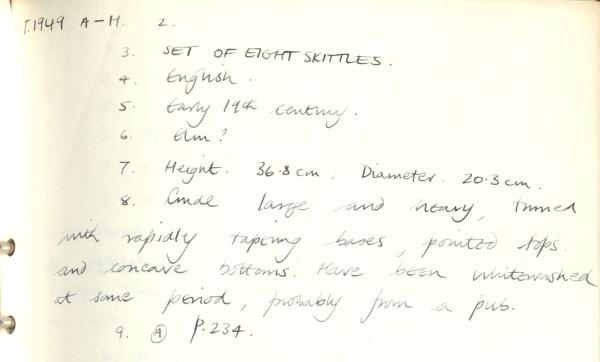 T.1949 A-H. 2.
3. SET OF EIGHT SKITTLES.
4. English.
5. Early 19th century.
6. Elm?
7. Height. 36.8 cm. Diameter. 20.3 cm.
8. Crude large and heavy, turned
with rapidly tapering bases, pointed tops.
and concave bottoms. Have been whitewashed
at some period, probably from a pub.
9. Ⓐ P.234.